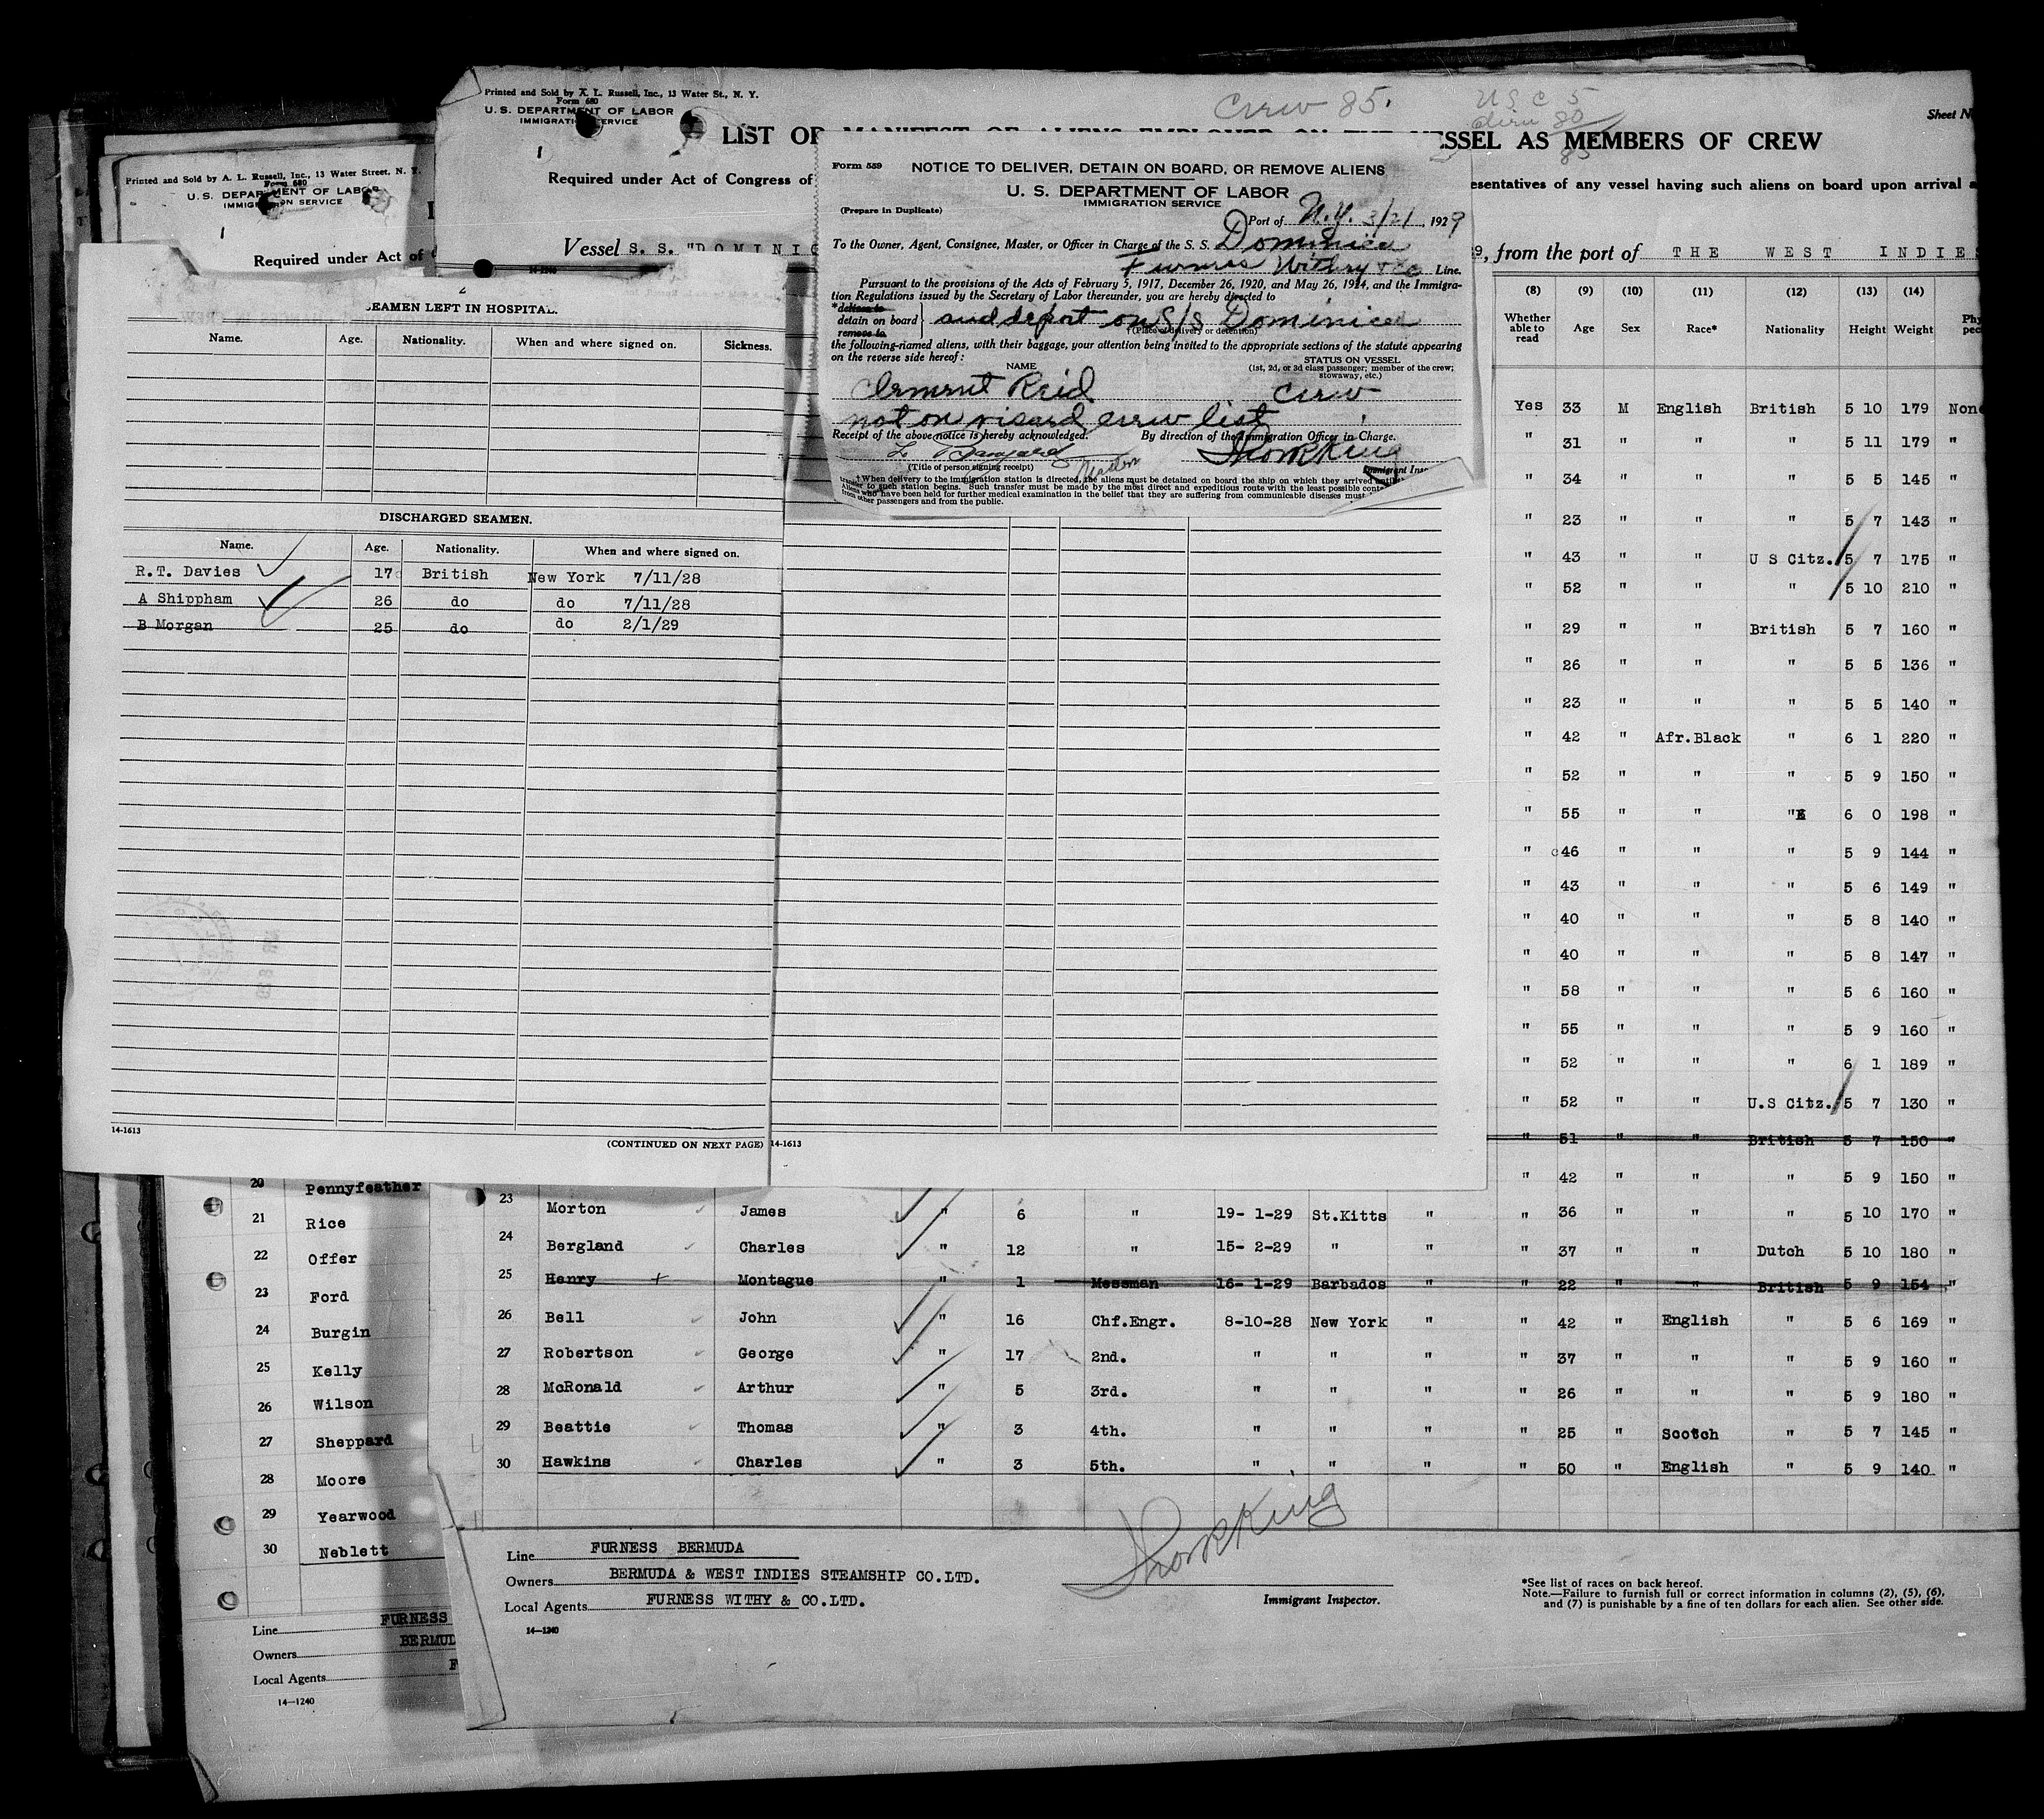 Printed and Sold by A. L. Russell, Inc., 13 Water St., N. Y.
Form 680
U. S. DEPARTMENT OF LABOR
IMMIGRATION SERVICE
1
Crew 85.
U S C 5
80
85
Sheet N
LIST OR MANIFEST OF ALIENS EMPLOYED ON THE VESSEL AS MEMBERS OF CREW
Required under Act of Congress of
esentatives of any vessel having such aliens on board upon arrival a
Vessel S. S. "DOMINIC
9, from the port of THE WEST INDIES
14-1240
Printed and Sold by A. L. Russell, Inc., 13 Water Street, N. Y.
Form 680
U. S. DEPARTMENT OF LABOR
IMMIGRATION SERVICE
1
Required under Act of
Form 559
NOTICE TO DELIVER, DETAIN ON BOARD, OR REMOVE ALIENS
U. S. DEPARTMENT OF LABOR
IMMIGRATION SERVICE
(Prepare in Duplicate)
Port of N.Y. 3/21, 1929
To the Owner, Agent, Consignee, Master, or Officer in Charge of the S. S. Dominica
Furness Withy & Co Line.
Pursuant to the provisions of the Acts of February 5, 1917, December 26, 1920, and May 26, 1924, and the Immigra-
tion Regulations issued by the Secretary of Labor thereunder, you are hereby directed to
*deliver to
detain on board and deport on S/S Dominica
remove to
†(Place of delivery or detention)
the following-named aliens, with their baggage, your attention being invited to the appropriate sections of the statute appearing
on the reverse side hereof:
STATUS ON VESSEL
NAME
(1st, 2d, or 3d class passenger; member of the crew;
stowaway, etc.)
Clement Reid Crew
not on visard crew list
Receipt of the above notice is hereby acknowledged. By direction of the Immigration Officer in Charge.
Master
(Title of person signing receipt) Immigrant Ins
†When delivery to the immigration station is directed, the aliens must be detained on board the ship on which they arrived until
transfer to such station begins. Such transfer must be made by the most direct and expeditious route with the least possible
Aliens who have been held for further medical examination in the belief that they are suffering from communicable diseases must
from other passengers and from the public.
SEAMEN LEFT IN HOSPITAL.
Name. Age. Nationality. When and where signed on. Sickness.
DISCHARGED SEAMEN.
Name. Age. Nationality. When and where signed on.
R.T. Davies 17 British New York 7/11/28
A Shippham 26 do do 7/11/28
B Morgan 25 do do 2/1/29
14-1613
(CONTINUED ON NEXT PAGE)
14-1613
(8) (9) (10) (11) (12) (13) (14)
Whether able to read Age Sex Race* Nationality Height Weight Phy
Yes 33 M English British 5 10 179 None
" 31 " " " 5 11 179 "
" 34 " " " 5 5 145 "
" 23 " " " 5 7 143 "
" 43 " " U S Citz. 5 7 175 "
" 52 " " " 5 10 210 "
" 29 " " British 5 7 160 "
" 26 " " " 5 5 136 "
" 23 " " " 5 5 140 "
" 42 " Afr.Black " 6 1 220 "
" 52 " " " 5 9 150 "
" 55 " " " 6 0 198 "
" 46 " " " 5 9 144 "
" 43 " " " 5 6 149 "
" 40 " " " 5 8 140 "
" 40 " " " 5 8 147 "
" 58 " " " 5 6 160 "
" 55 " " " 5 9 160 "
" 52 " " " 6 1 189 "
" 52 " " U.S Citz. 5 7 130 "
" 51 " " British 5 7 150 "
" 42 " " " 5 9 150 "
23 Morton James " 6 " 19- 1-29 St.Kitts " " 36 " " " 5 10 170 "
24 Bergland Charles " 12 " 15- 2-29 " " " 37 " " Dutch 5 10 180 "
25 Henry + Montague " 1 Messman 16- 1-29 Barbados " " 22 " " British 5 9 154 "
26 Bell John " 16 Chf.Engr. 8-10-28 New York " " 42 " English " 5 6 169 "
27 Robertson George " 17 2nd. " " " " 37 " " " 5 9 160 "
28 McRonald Arthur " 5 3rd. " " " " 26 " " " 5 9 180 "
29 Beattie Thomas " 3 4th. " " " " 25 " Scotch " 5 7 145 "
30 Hawkins Charles " 3 5th. " " " " 50 " English " 5 9 140 "
Line FURNESS BERMUDA
Owners BERMUDA & WEST INDIES STEAMSHIP CO.LTD.
Local Agents FURNESS WITHY & CO.LTD.
14-1240
Immigrant Inspector.
*See list of races on back hereof.
Note.—Failure to furnish full or correct information in columns (2), (5), (6),
and (7) is punishable by a fine of ten dollars for each alien. See other side.
20 Pennyfeather
21 Rice
22 Offer
23 Ford
24 Burgin
25 Kelly
26 Wilson
27 Sheppard
28 Moore
29 Yearwood
30 Neblett
Line FURNESS
Owners BERMUD
Local Agents F
14-1240